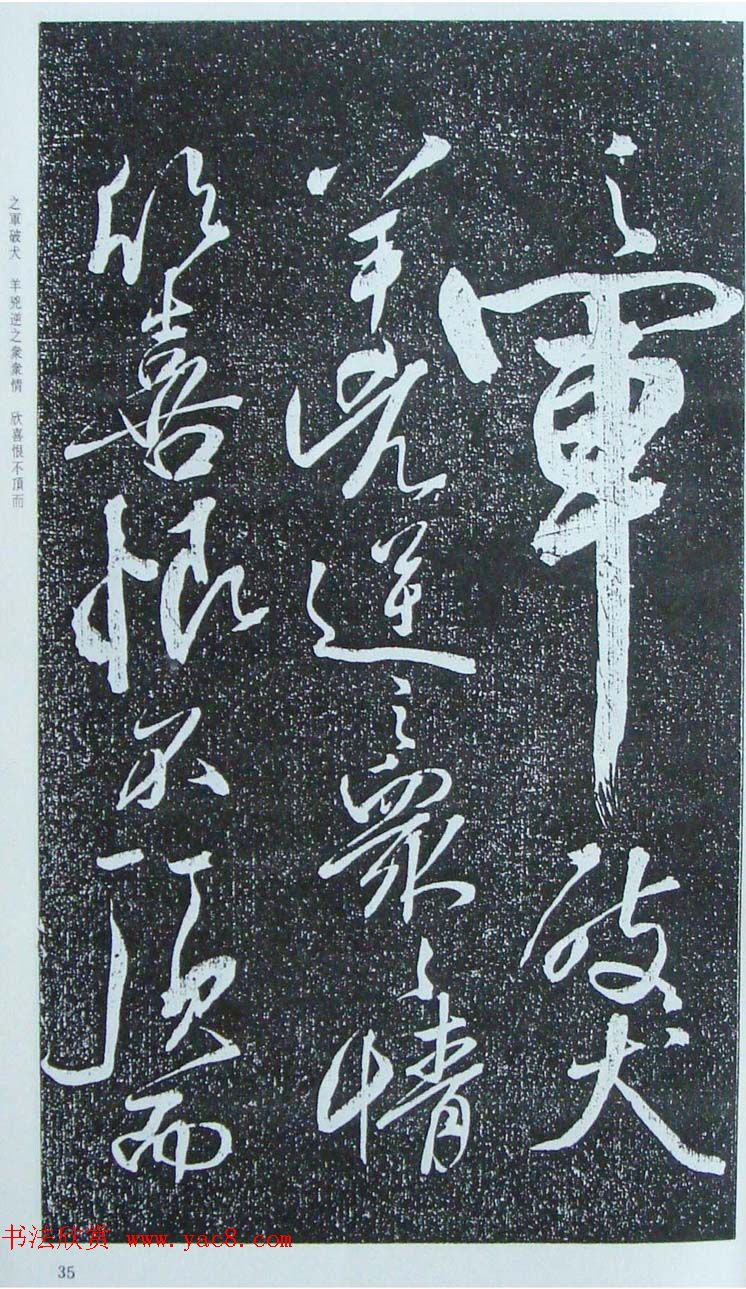 之軍破犬
羊兇逆之衆々情
欣喜恨不頂而
之軍破犬　羊兇逆之衆衆情　欣喜恨不頂而
书法欣赏 www.yac8.com
35